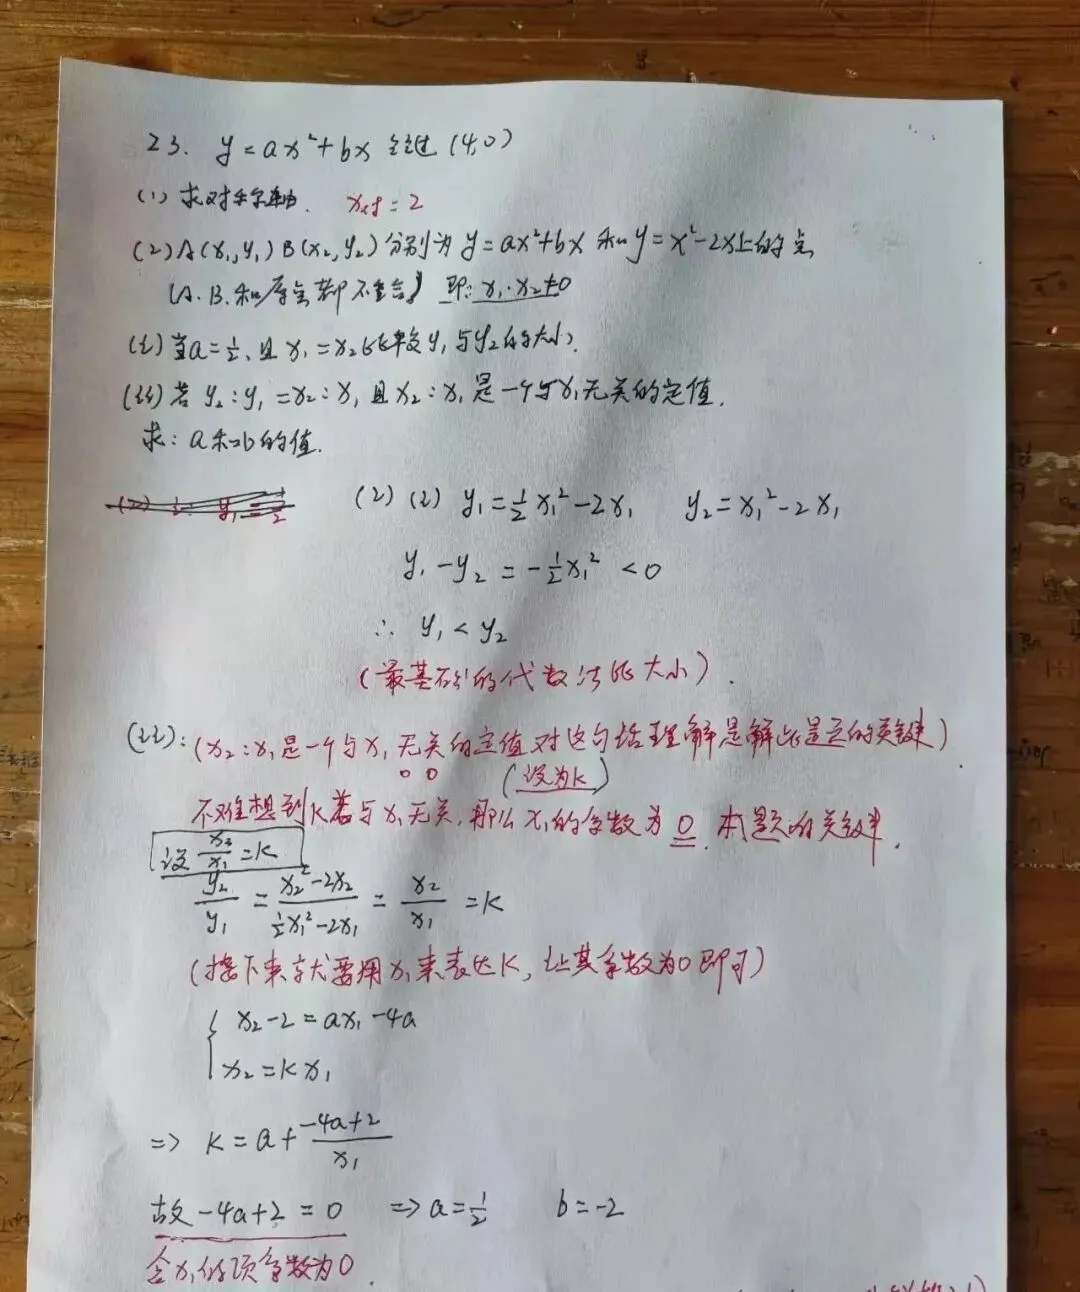 23. y=ax²+bx 经过(4,0)
(1) 求对称轴. x对=2
(2) A(x₁,y₁) B(x₂,y₂) 分别为 y=ax²+bx 和 y=x²-2x上的点
(A.B.和原点都不重合) 即: x₁·x₂≠0
(i) 当a=½, 且 x₁=x₂ 比较 y₁ 与 y₂ 的大小.
(ii) 若 y₂:y₁=x₂:x₁ 且 x₂:x₁ 是一个与x₁无关的定值.
求: a和b的值.
(2) (i) y₁=½x₁²-2x₁ y₂=x₁²-2x₁
y₁-y₂=-½x₁²<0
∴ y₁<y₂
(最基础的代数法比大小).
(ii): (x₂:x₁是一个与x₁无关的定值对这句话理解是解此题的关键)
(设为k)
不难想到k若与x₁无关, 那么x₁的系数为0. 本题的关键.
设 x₂/x₁=k
y₂/y₁ = (x₂²-2x₂)/(½x₁²-2x₁) = x₂/x₁ = k
(接下来就要用x₁来表达k, 让其系数为0即可)
{ x₂-2=ax₁-4a
x₂=kx₁
=> k=a+(-4a+2)/x₁
故 -4a+2=0 => a=½ b=-2
含x₁的项系数为0.